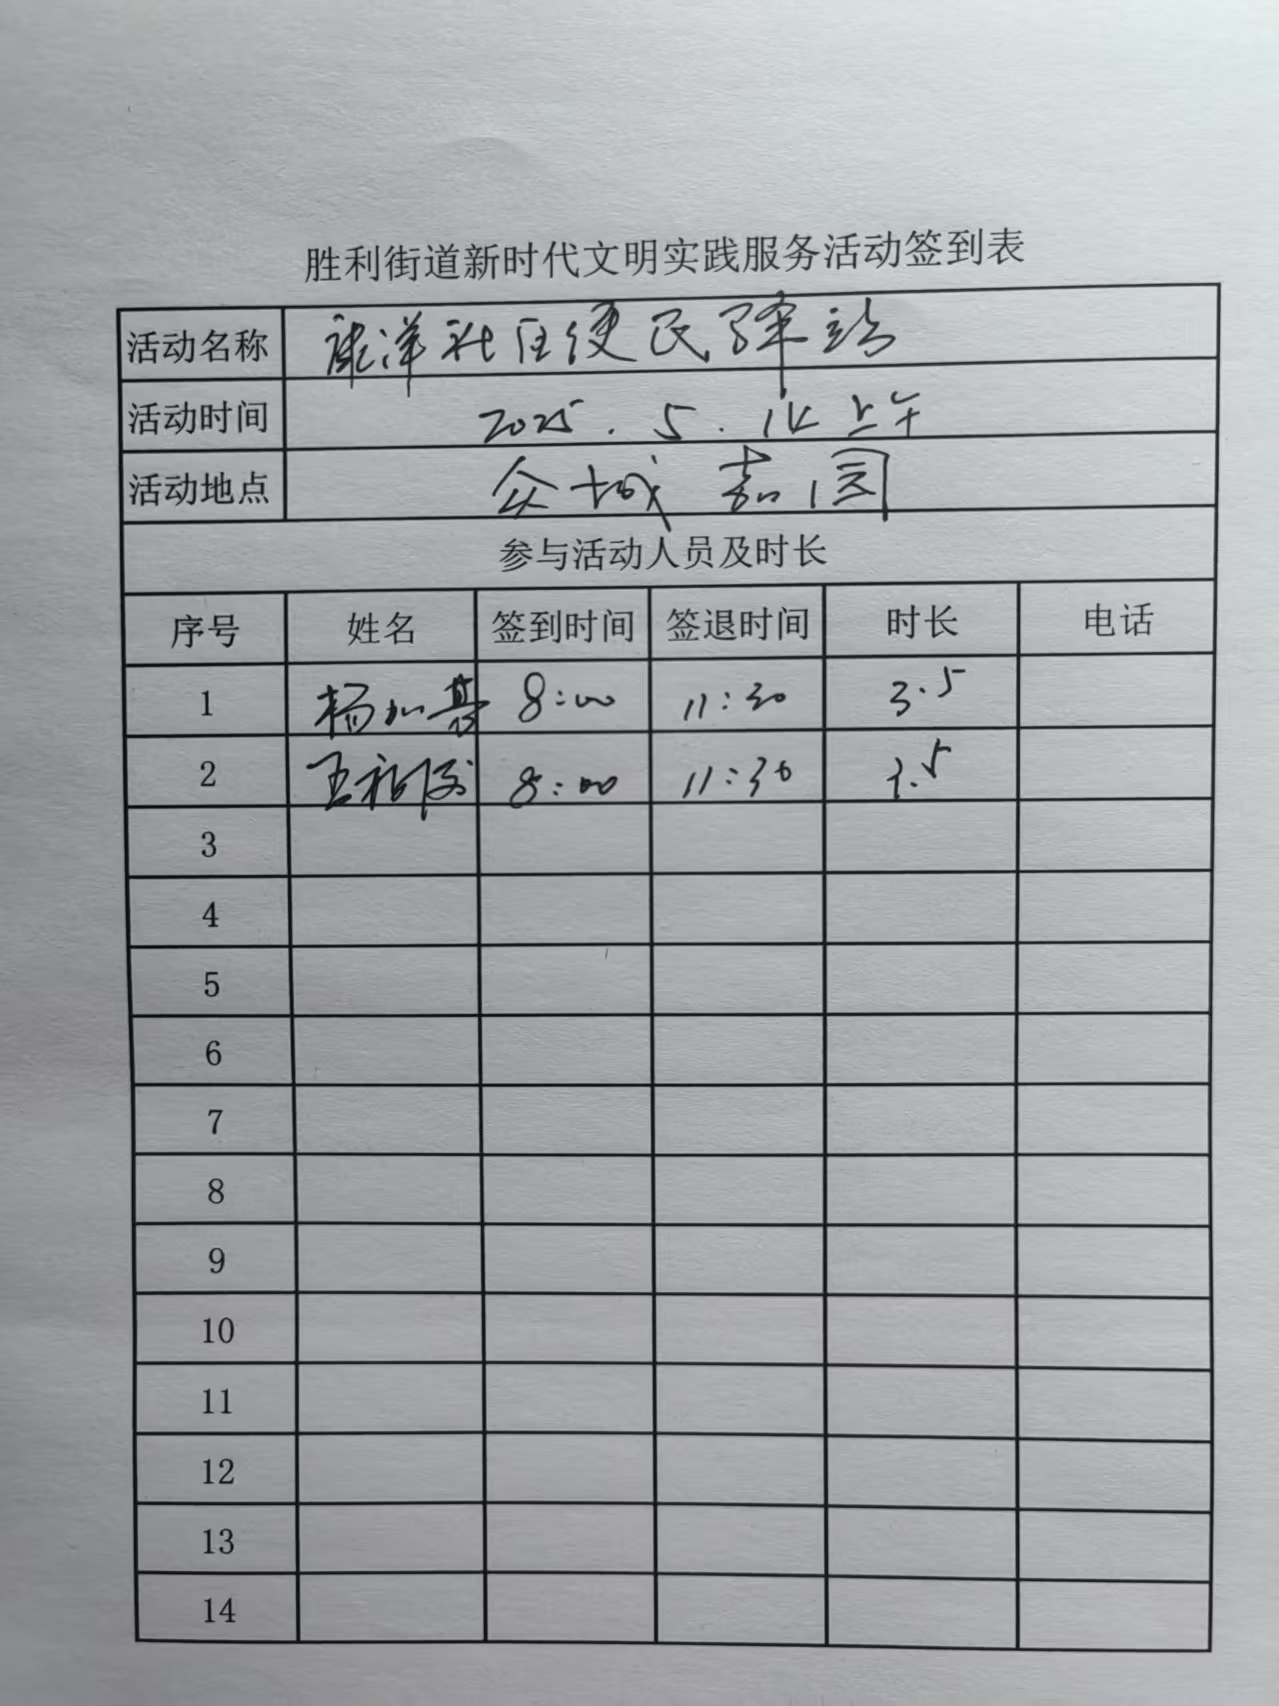 胜利街道新时代文明实践服务活动签到表
活动名称 社区便民驿站
活动时间 2025.5.14上午
活动地点 众城嘉园
参与活动人员及时长
序号 姓名 签到时间 签退时间 时长 电话
1 杨 8:00 11:30 3.5
2 王 8:00 11:30 3.5
3
4
5
6
7
8
9
10
11
12
13
14